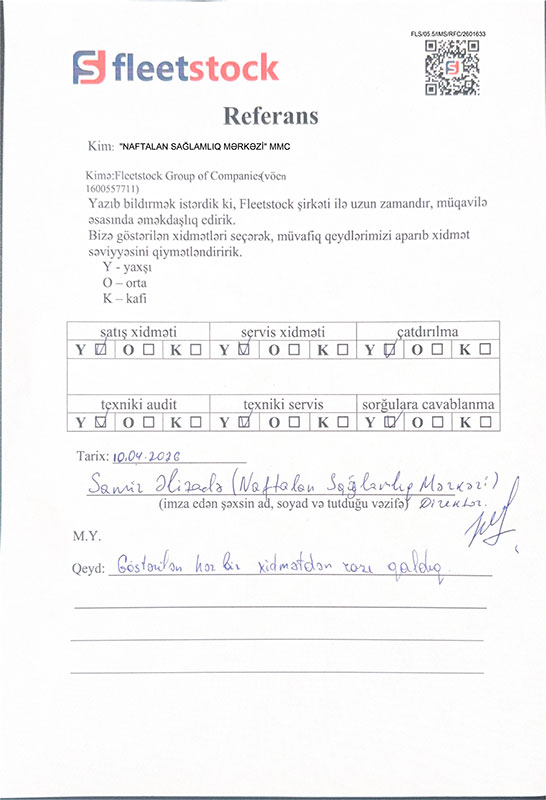 FLS/05.5/IMS/RFC/2601633
fleetstock
Referans
Kim: "NAFTALAN SAĞLAMLIQ MƏRKƏZİ" MMC
Kimə:Fleetstock Group of Companies(vöen
1600557711)
Yazıb bildirmək istərdik ki, Fleetstock şirkəti ilə uzun zamandır, müqavilə
əsasında əməkdaşlıq edirik.
Bizə göstərilən xidmətləri seçərək, müvafiq qeydlərimizi aparıb xidmət
səviyyəsini qiymətləndiririk.
Y - yaxşı
O – orta
K – kafi
satış xidməti servis xidməti çatdırılma
Y ☑ O ☐ K ☐ Y ☑ O ☐ K ☐ Y ☑ O ☐ K ☐
texniki audit texniki servis sorğulara cavablanma
Y ☑ O ☐ K ☐ Y ☑ O ☐ K ☐ Y ☑ O ☐ K ☐
Tarix: 10.04.2026
Samir Əlizadə (Naftalan Sağlamlıq Mərkəzi)
(imza edən şəxsin ad, soyad və tutduğu vəzifə) Direktor.
M.Y.
Qeyd: Göstərilən hər bir xidmətdən razı qaldıq.